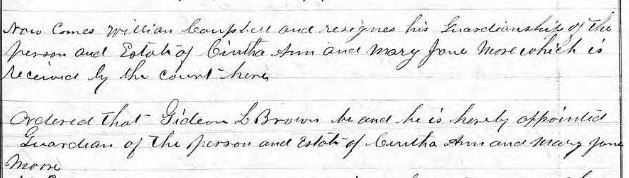 Now Comes William Campbell and resignes his Guardianship of the
person and Estate of Cintha Ann and Mary Jane More which is
received by the court here
Ordered that Gideon L Brown be and he is hereby appointed
Guardian of the person and Estate of Cintha Ann and Mary Jane
Moore